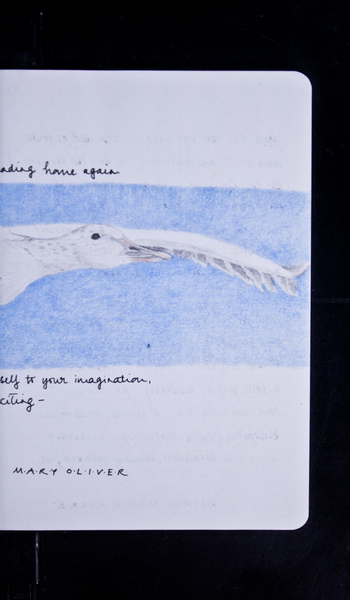 ading home again
self to your imagination,
citing—
M·A·R·Y O·L·I·V·E·R